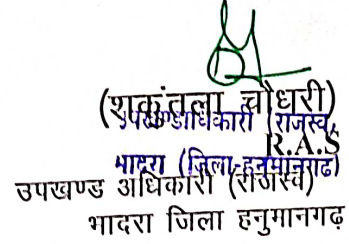 (शकुंतला चौधरी)
उपखण्डाधिकारी (राजस्व)
R.A.S
भादरा (जिला-हनुमानगढ)
उपखण्ड अधिकारी (राजस्व)
भादरा जिला हनुमानगढ़